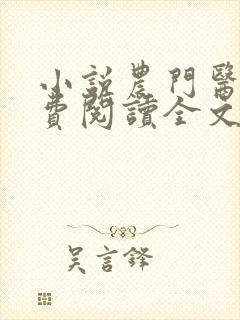 小說農門醫
費閱讀全文
吳言鋒